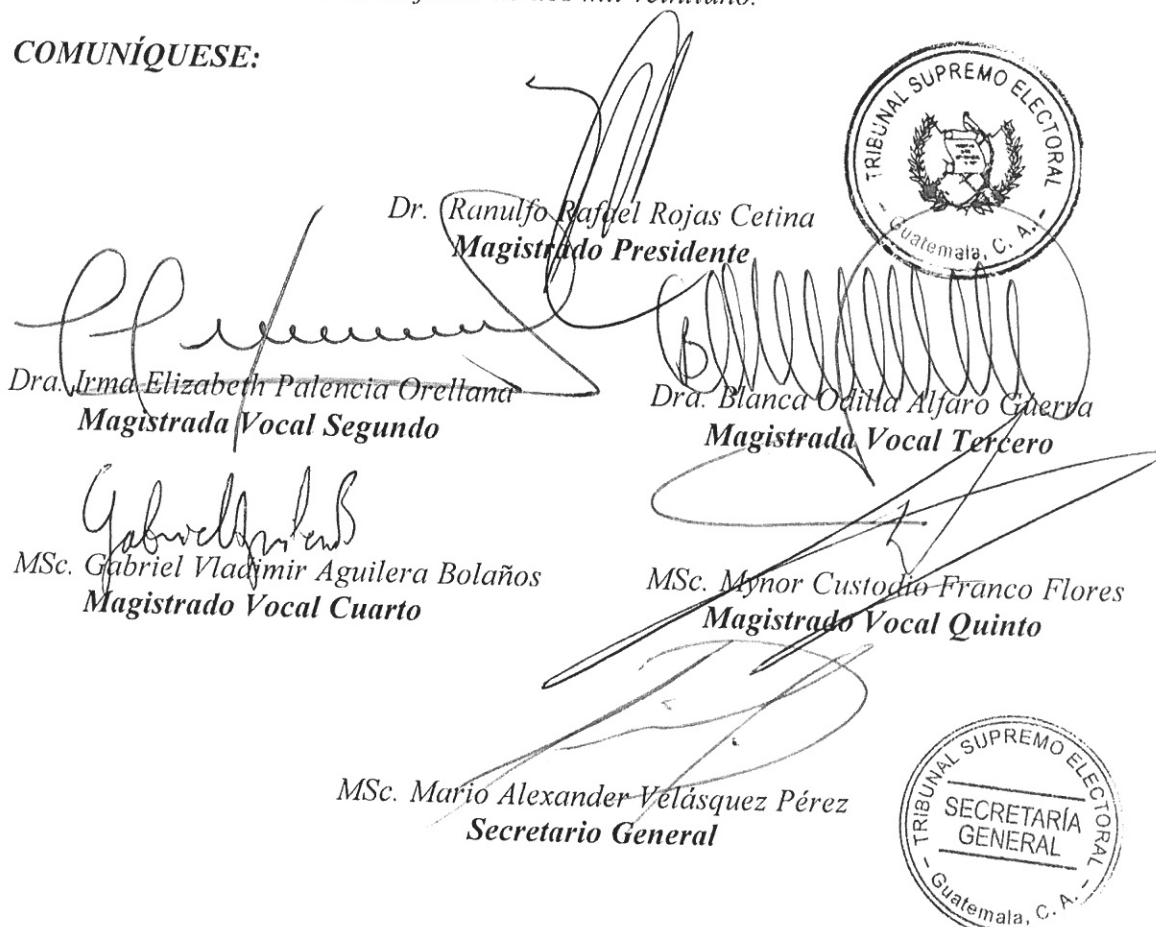 dos mil veintiuno.
COMUNÍQUESE:
TRIBUNAL SUPREMO ELECTORAL
- Guatemala, C. A. -
Dr. Ranulfo Rafael Rojas Cetina
Magistrado Presidente
Dra. Irma Elizabeth Palencia Orellana
Magistrada Vocal Segundo
Dra. Blanca Odilia Alfaro Guerra
Magistrada Vocal Tercero
MSc. Gabriel Vladimir Aguilera Bolaños
Magistrado Vocal Cuarto
MSc. Mynor Custodio Franco Flores
Magistrado Vocal Quinto
MSc. Mario Alexander Velásquez Pérez
Secretario General
TRIBUNAL SUPREMO ELECTORAL
SECRETARÍA
GENERAL
- Guatemala, C. A. -